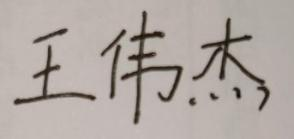 王伟杰